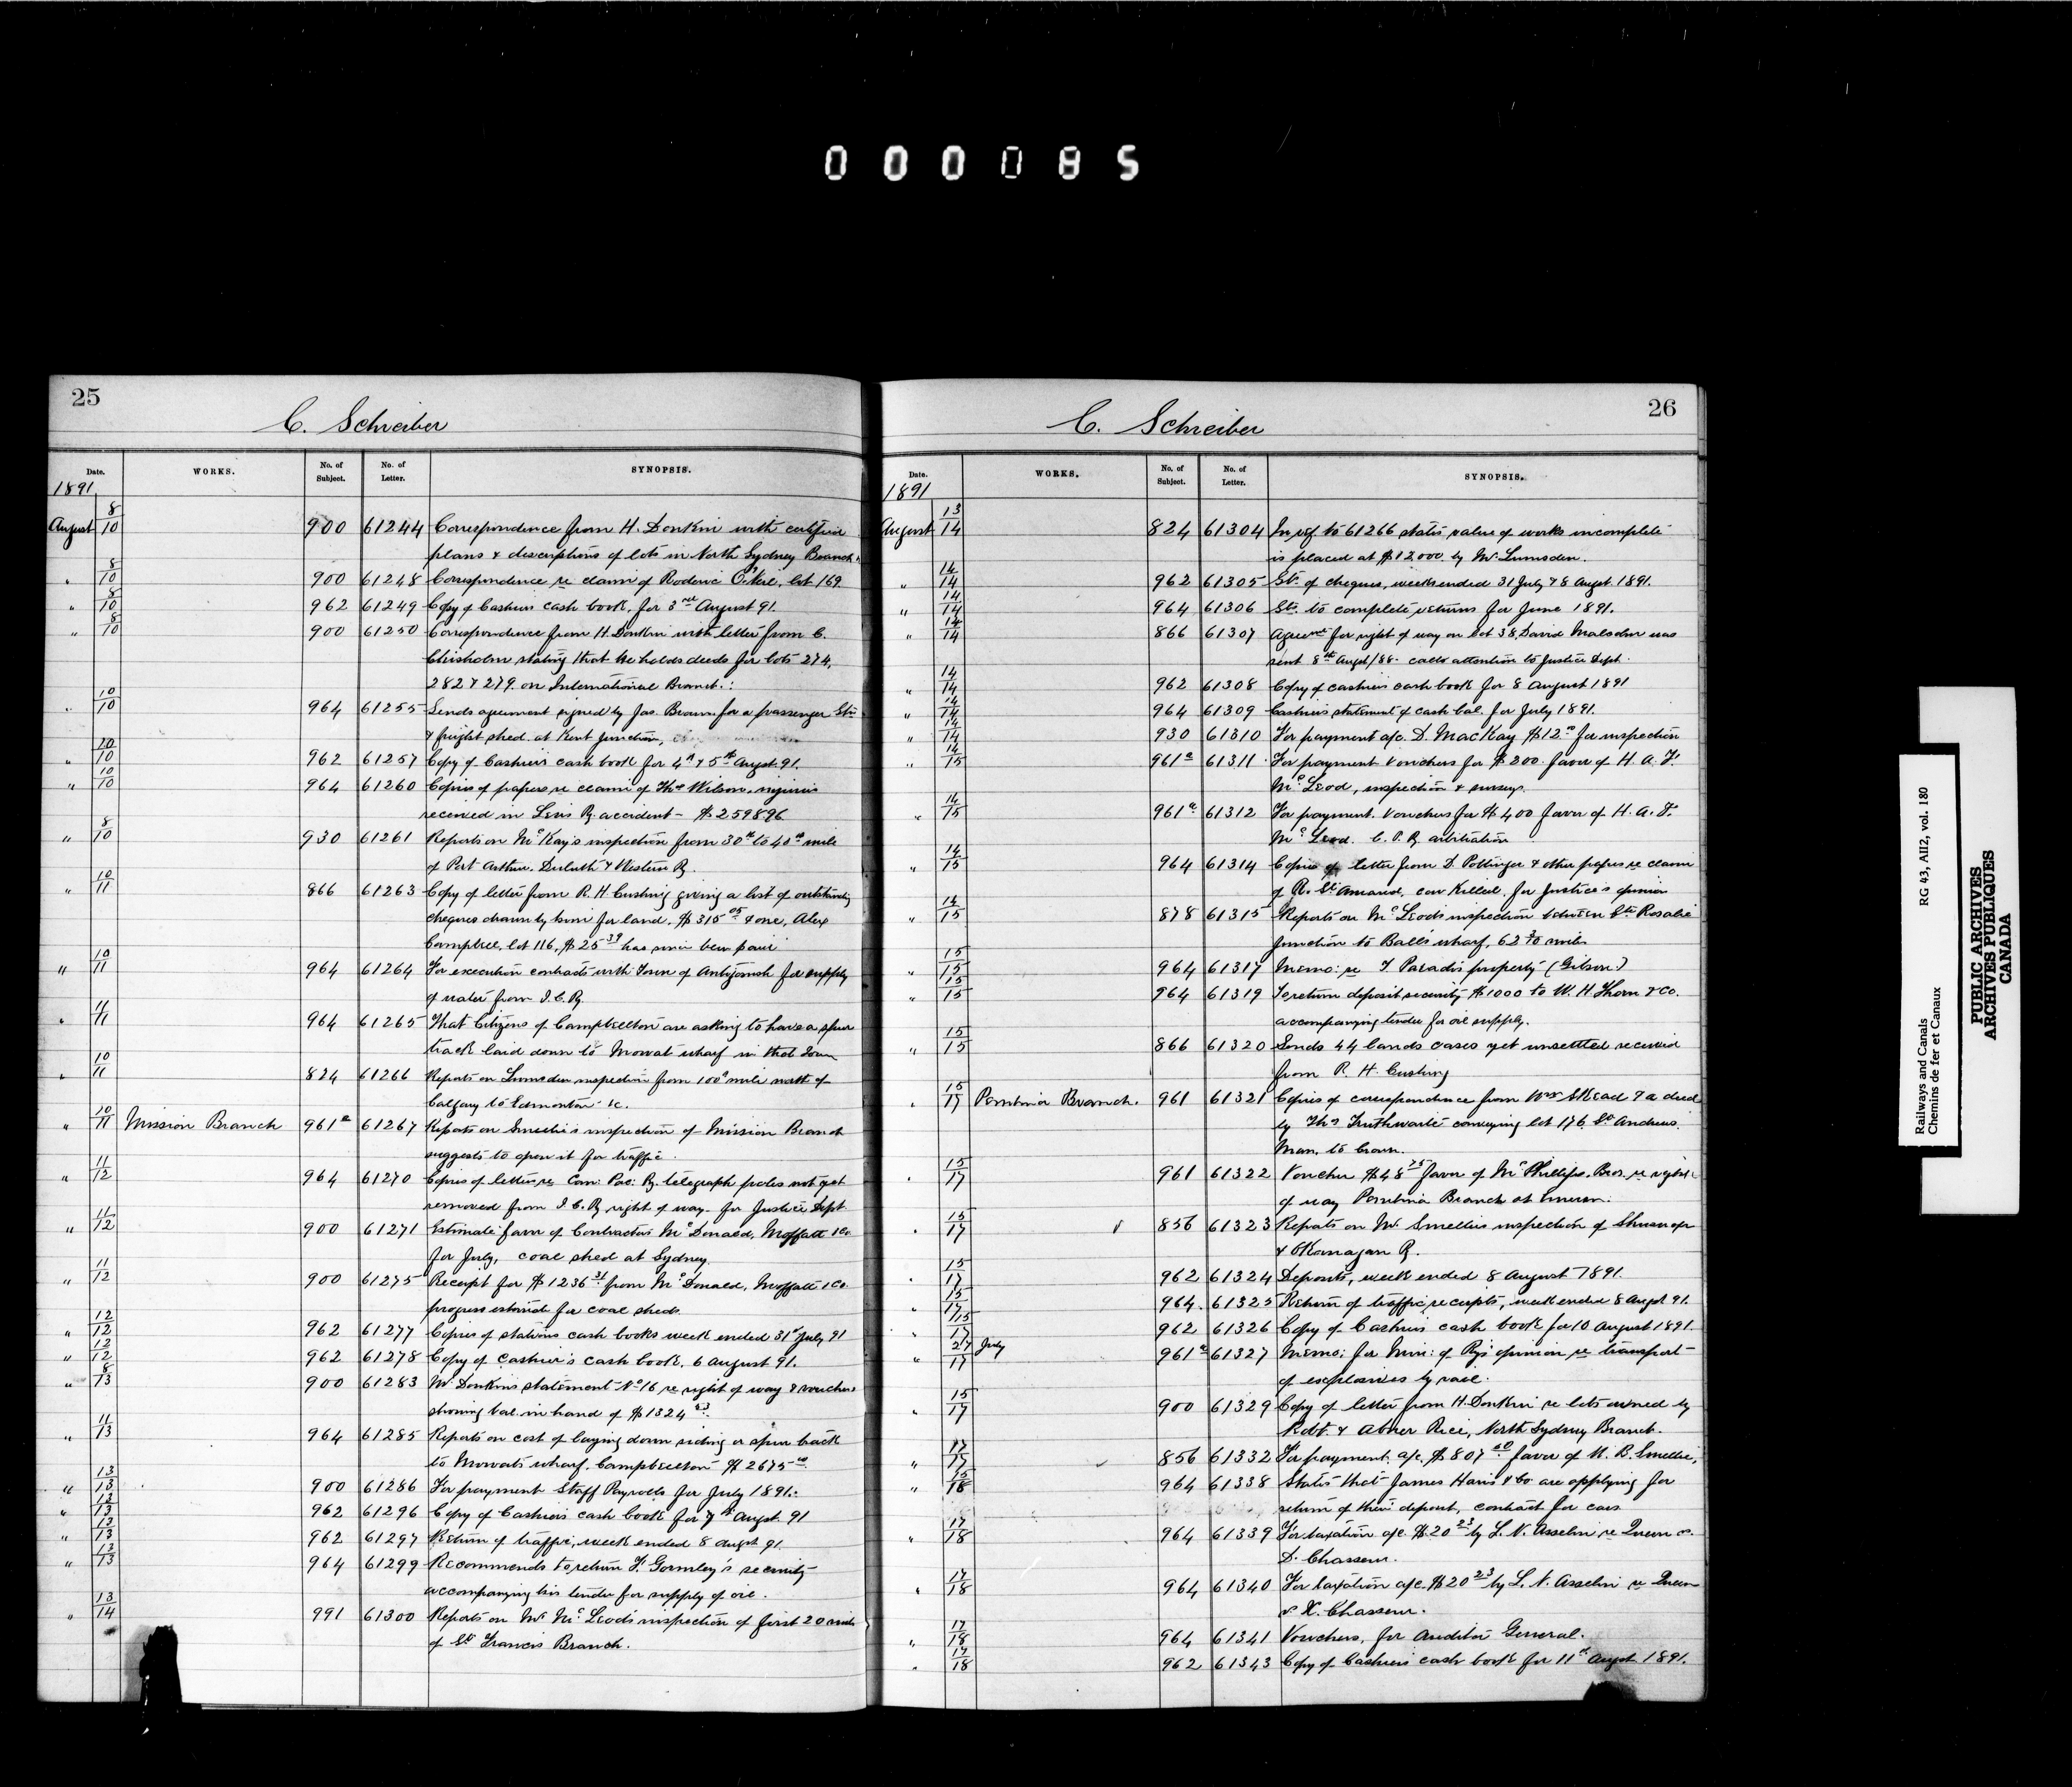 000085
25
C. Schreiber
Date. WORKS. No. of Subject. No. of Letter. SYNOPSIS.
1891
August 8/10 900 61244 Correspondence from H. Donkin with certified
plans & descriptions of lots in North Sydney Branch
" 8/10 900 61248 Correspondence re claim of Roderic lot 169
" 8/10 962 61249 Copy of Cashiers cash book, for 3rd August 91.
" 8/10 900 61250 Correspondence from H. Donkin with letter from C.
Chisholm stating that he holds deeds for lots 274,
282 & 279 on International Branch.
" 10/10 964 61255 Sends agreement signed by Jas. Brown for a passenger Stn
& freight shed at Kent Junction,
" 10/10 962 61257 Copy of Cashiers cash book for 4th & 5th August 91.
" 10/10 964 61260 Copies of papers re claim of Thos Wilson, injuries
received in Levis Ry. accident - $2598 96
" 8/10 930 61261 Reports on McKay's inspection from 30th to 40th mile
of Port Arthur, Duluth & Western Ry.
" 10/11 866 61263 Copy of letter from R. H. Cushing giving a list of outstanding
cheques drawn by him for land, $315 05 & one, Alex
Campbell, lot 116, $25 39 has since been paid
" 10/11 964 61264 For execution contracts with Town of Antigonish for supply
of water from I.C.Ry.
" 11/11 964 61265 That Citizens of Campbellton are asking to have a spur
track laid down to Mowat wharf in that Town
" 10/11 824 61266 Reports on Lumsden inspection from 100th mile north of
Calgary to Edmonton &c.
" 10/11 Mission Branch 961a 61267 Reports on Smellie's inspection of Mission Branch
suggests to open it for traffic.
" 11/12 964 61270 Copies of letter re Can: Pac: Ry. telegraph poles not yet
removed from I.C.Ry right of way - for Justice Dept
" 11/12 900 61271 Estimate favor of Contractors McDonald, Moffatt & Co
for July, coal shed at Sydney.
" 11/12 900 61275 Receipt for $1236 31 from McDonald, Moffatt & Co
progress estimate for coal sheds.
" 12/12 962 61277 Copies of stations cash books week ended 31st July 91
" 12/12 962 61278 Copy of Cashier's cash book, 6 August 91.
" 8/13 900 61283 Mr. Donkins statement No 16 re right of way & vouchers
showing bal. in hand of $1324
" 11/13 964 61285 Reports on cost of laying down siding or spur track
to Mowats wharf, Campbellton $2675 00
" 13/13 900 61286 For payment Staff Payrolls for July 1891.
" 12/13 962 61296 Copy of Cashiers cash book for 7th August 91
" 13/13 962 61297 Return of traffic, week ended 8 augst 91.
" 12/13 964 61299 Recommends to return F. Gormley's security
accompanying his tender for supply of oil.
" 13/14 991 61300 Reports on Mr McLeods inspection of first 20 miles
of St Francis Branch.
26
C. Schreiber
Date. WORKS. No. of Subject. No. of Letter. SYNOPSIS.
1891
August 13/14 824 61304 In ref. to 61266 states value of works incomplete
is placed at $12000 by Mr Lumsden.
" 14/14 962 61305 St. of cheques, weeks ended 31 July & 8 Augst. 1891.
" 14/14 964 61306 St. to complete returns for June 1891.
" 14/14 866 61307 Agreemt for right of way on lot 38, David was
sent 8th Augst/88 - calls attention to Justice Dept.
" 14/14 962 61308 Copy of cashiers cash book for 8 August 1891
" 14/14 964 61309 Cashiers statement of cash bal. for July 1891.
" 14/14 930 61310 For payment a/c. D. MacKay $12 00 for inspection
" 14/15 961a 61311 For payment vouchers for $200 favor of H. A. F.
McLeod, inspection & surveys.
" 14/15 961a 61312 For payment. Vouchers for $400 favor of H. A. F.
McLeod. C.P.Ry arbitration
" 14/15 964 61314 Copies of letter from D. Pottinger & other papers re claim
of R. St Amand, cow killed, for Justice's opinion
" 14/15 878 61315 Reports on McLeods inspection between Ste Rosalie
Junction to Balls wharf, 62 3/10 miles
" 15/15 964 61317 Memo: re T Paradis property (Gibson)
" 15/15 964 61319 To return deposit security $1000 to W. H Thorn & Co.
accompanying tender for oil supply.
" 15/15 866 61320 Sends 44 lands cases yet unsettled received
from R. H. Cushing
" 15/17 Pembina Branch. 961 61321 Copies of correspondence from & a deed
by Thos Truthwaite conveying lot 176 St Andrews,
Man. to Crown.
" 15/17 961 61322 Voucher $48 75 favor of McPhillips, Bros. re right
of way Pembina Branch at Emerson.
" 15/17 856 61323 Reports on Mr Smellies inspection of Shuswap
& Okanagan Ry.
" 15/17 962 61324 Deposits, week ended 8 August 1891.
" 15/17 964 61325 Return of traffic receipts, week ended 8 Augst 91.
" 15/17 962 61326 Copy of Cashiers cash book for 10 August 1891.
" 27/17 July 961a 61327 Memo: for Min: of Rys opinion re transport
of explosives by rail.
" 15/17 900 61329 Copy of letter from H. Donkin re lots owned by
Robt. & Abner Rice, North Sydney Branch.
" 17/17 856 61332 For payment, a/c. $807 favor of W. B. Smellie,
" 15/18 964 61338 States that James Harris & Co are applying for
return of their deposit, contract for cars
" 17/18 964 61339 For taxation a/c. $20 23 by L. N. Asselin re Queen vs.
D. Chasseur.
" 17/18 964 61340 For taxation a/c. $20 23 by L. N. Asselin re Queen
v X. Chasseur.
" 17/18 964 61341 Vouchers, for Auditor General.
" 17/18 962 61343 Copy of Cashiers cash book for 11th augst 1891.
Railways and Canals
Chemins de fer et Canaux
RG 43, AII2, vol. 180
PUBLIC ARCHIVES
ARCHIVES PUBLIQUES
CANADA